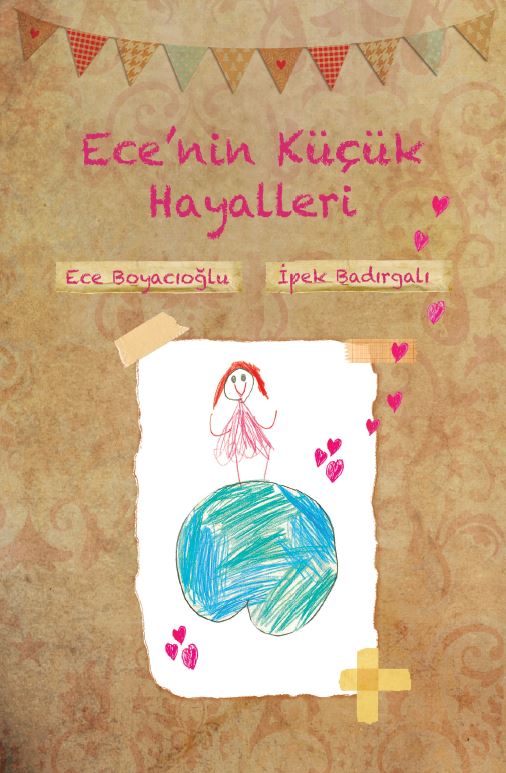 Ece'nin Küçük
Hayalleri
Ece Boyacıoğlu
İpek Badırgalı